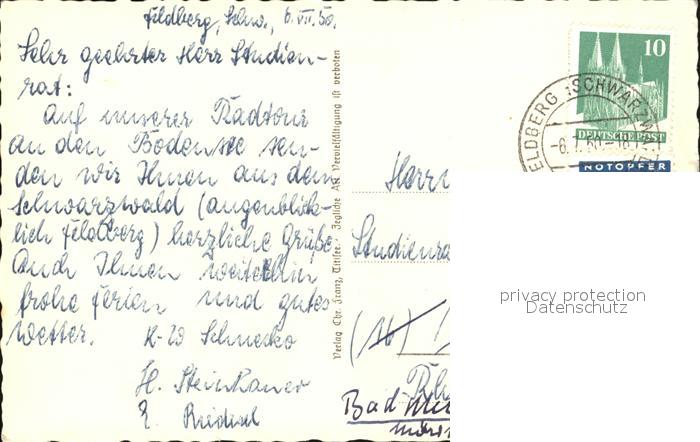 Feldberg, Schw., 6.VII.50.
Sehr geehrter Herr Studien-
rat:
Auf unserer Radtour
an den Bodensee sen-
den wir Ihnen aus dem
Schwarzwald (augenblick-
lich Feldberg) herzliche Grüße
Auch Ihnen weiterhin
frohe Ferien und gutes
Wetter.
H. Steinkamer
E. Riedisel
Verlag Chr. Franz, Titisee. Jegliche Art Vervielfältigung ist verboten
10
DEUTSCHE POST
NOTOPFER
FELDBERG (SCHWARZW
-6.7.50.-18
Herrn
Studienra
(16)
Bad
privacy protection
Datenschutz